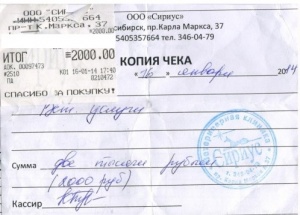 ООО "СИР
ИНН-54053 664
ПР-Т.К.Маркса, 37
ООО «Сириус»
сибирск, пр.Карла Маркса, 37
5405357664 тел. 346-04-79
ИТОГ ≡2000.00
ДОК. 00097473 К01 16-01-14 17:40
#2510 0210472
ПД
СПАСИБО ЗА ПОКУПКУ!
КОПИЯ ЧЕКА
"16" января 2014
Вет услуги
Сумма две тысячи рублей
(2000 руб)
Кассир
Сириус